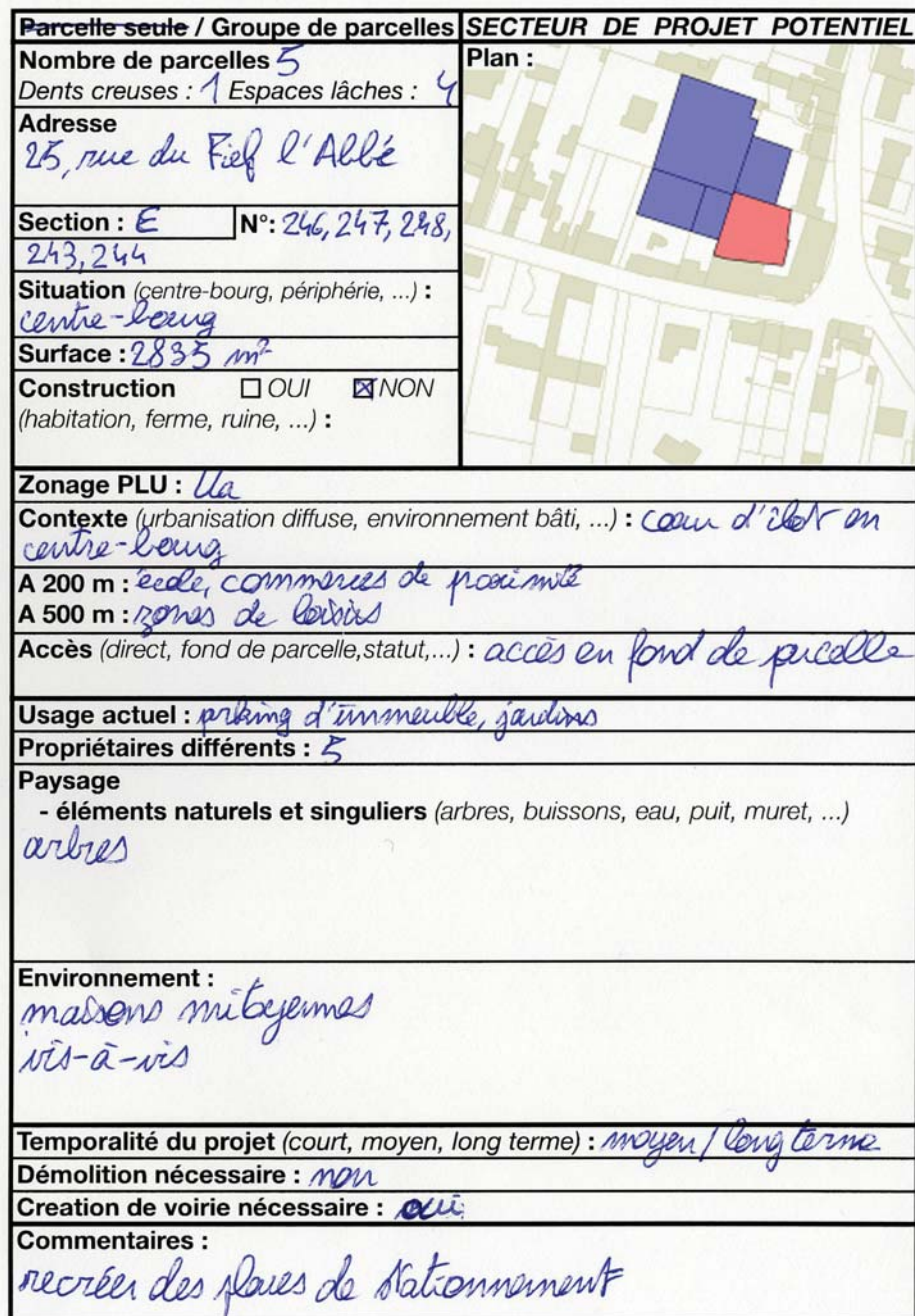 Parcelle seule / Groupe de parcelles
SECTEUR DE PROJET POTENTIEL
Nombre de parcelles 5
Dents creuses : 1 Espaces lâches : 4
Plan :
Adresse
25, rue du Fief l'Abbé
Section : E
N°: 246, 247, 248,
243, 244
Situation (centre-bourg, périphérie, ...) :
centre-bourg
Surface : 2835 m²
Construction OUI NON
(habitation, ferme, ruine, ...) :
Zonage PLU : Ua
Contexte (urbanisation diffuse, environnement bâti, ...) : coeur d'îlot en
centre-bourg
A 200 m : école, commerces de proximité
A 500 m : zones de loisirs
Accès (direct, fond de parcelle,statut,...) : accès en fond de parcelle
Usage actuel : prking d'immeuble, jardins
Propriétaires différents : 5
Paysage
- éléments naturels et singuliers (arbres, buissons, eau, puit, muret, ...)
arbres
Environnement :
maisons mitoyennes
vis-à-vis
Temporalité du projet (court, moyen, long terme) : moyen / long terme
Démolition nécessaire : non
Creation de voirie nécessaire : oui
Commentaires :
recréer des places de stationnement